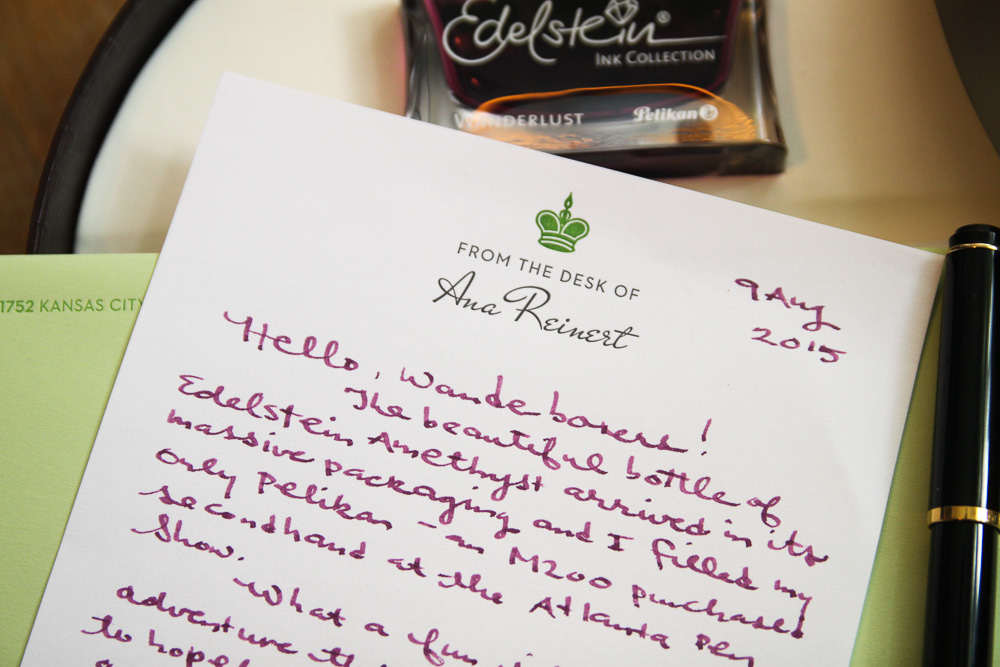 Edelstein®
INK COLLECTION
WANDERLUST Pelikan
1752 KANSAS CITY
FROM THE DESK OF
Ana Reinert
9 Aug
2015
Hello, Wande boxers!
The beautiful bottle of
Edelstein Amethyst arrived in its
massive packaging and I filled my
only Pelikan - an M200 purchased
secondhand at the Atlanta Pen
Show.
What a fun
adventure
to hope
a